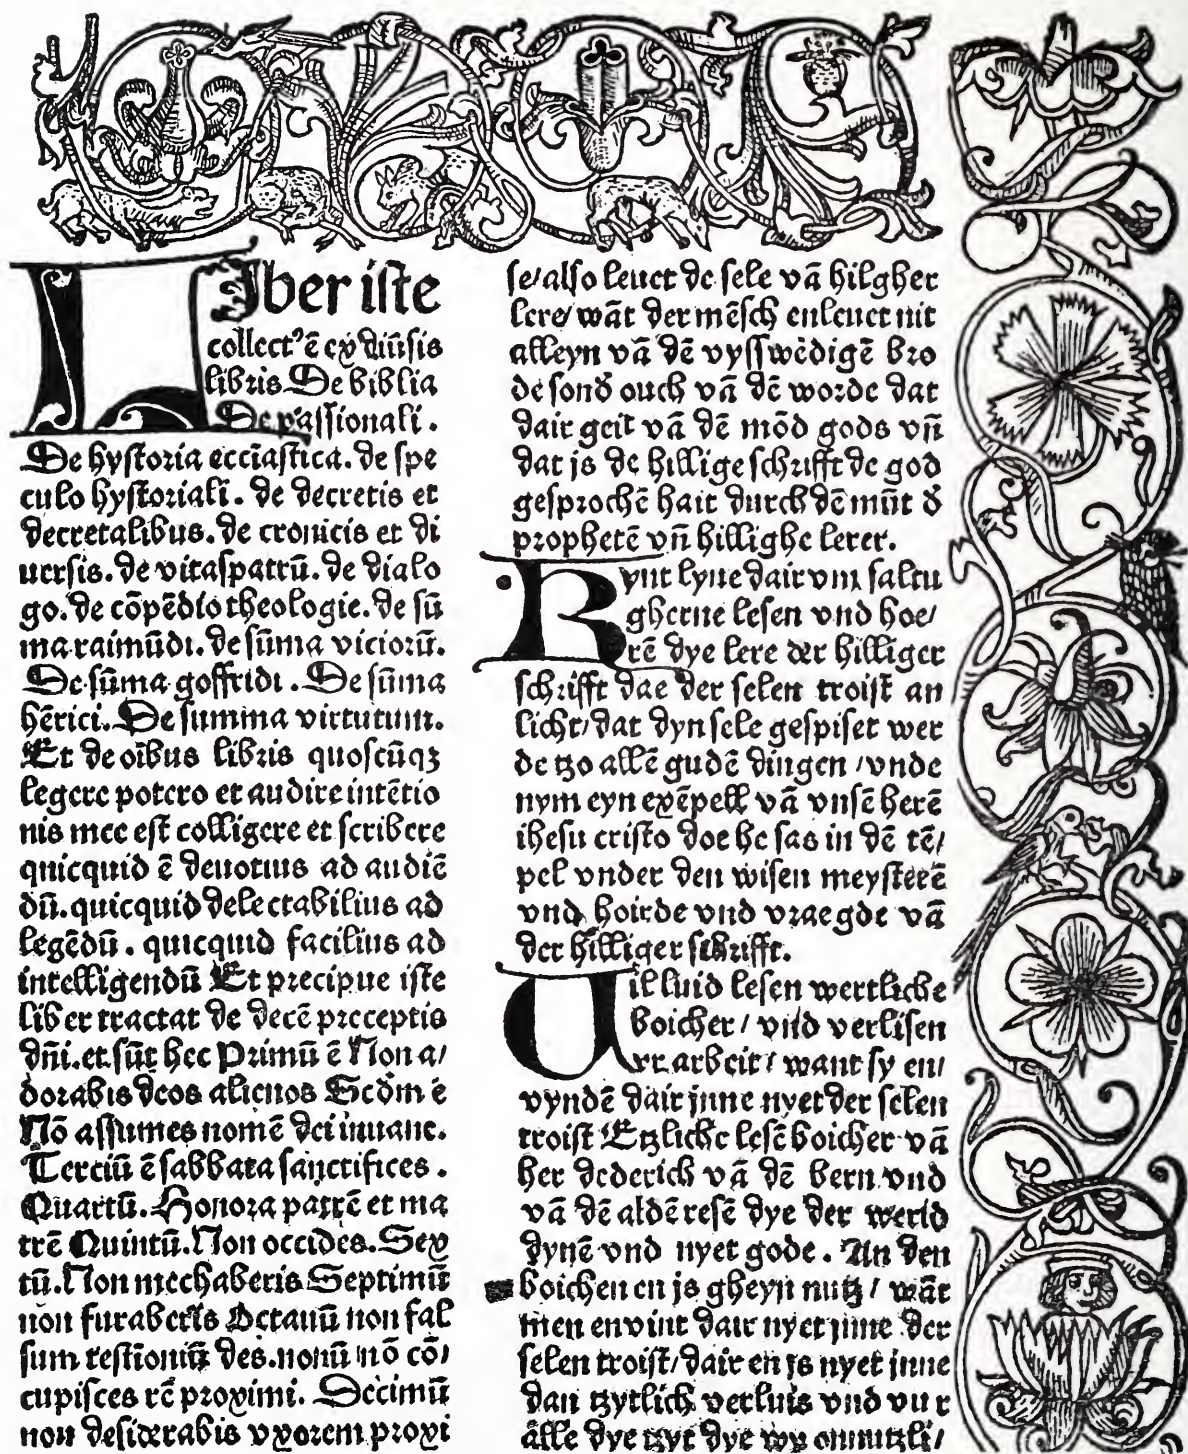 LIber iste
collect'ē ex diūsis
libris De biblia
De passionali .
De hystoria eccīastica. de spe
culo hystoriali . de decretis et
decretalibus. de cronicis et di
uersis. de vitaspatrū. de dialo
go. de cōpēdio theologie. de sū
ma raimūdi. de sūma viciorū.
De sūma goffridi . De sūma
hērici. De summa virtutum.
Et de oībus libris quoscūqꝫ
legere potero et audire intētio
nis mee est colligere et scribere
quicquid ē deuotius ad audiē
dū. quicquid delectabilius ad
legēdū . quicquid facilius ad
intelligendū Et precipue iste
liber tractat de decē preceptis
dn̄i. et sūt hec Primū ē Non a/
dorabis deos alienos Scd̄m ē
Nō assumes nomē dei inuanē.
Terciū ē sabbata sanctifices .
Quartū. Honora patrē et ma
trē Quintū. Non occides. Sex
tū. Non mechaberis Septimū
non furaberis Octauū non fal
sum testioniū des. nonū nō cō/
cupisces rē proximi. Decimū
non desiderabis vxorem proxi
se/ also leuet de sele vā hilgher
lere/ wāt der mēsch enleuet nit
alleyn vā dē vysswēdigē bro
de sond̄ ouch vā dē worde dat
dair geit vā dē mōd gods vn̄
dat is de hillige schrifft de god
gesprochē hait durch dē mūt d̄
prophetē vn̄ hillighe lerer.
Kynt lyue dair vm saltu
gherne lesen vnd hoe/
rē dye lere der hilliger
schrifft dae der selen troist an
licht/ dat dyn sele gespiset wer
de tzo allē gudē dingen / vnde
nym eyn exēpell vā vnsē herē
ihesu cristo doe he sas in dē tē/
pel vnder den wisen meysterē
vnd hoirde vnd vraegde vā
der hilliger schrifft.
Uil luid lesen wertliche
boicher / vnd verlisen
yr arbeit / want sy en/
vyndē dair jnne nyet der selen
troist Etzliche lesē boicher vā
her dederich vā dē bern vnd
vā dē aldē resē dye der werld
dynē vnd nyet gode . An den
boichen en js gheyn nutz / wāt
men envint dair nyet jnne der
selen troist/ dair en js nyet jnne
dan tzytlich verluis vnd vur
alle dye tzyt dye wy onnutzli/